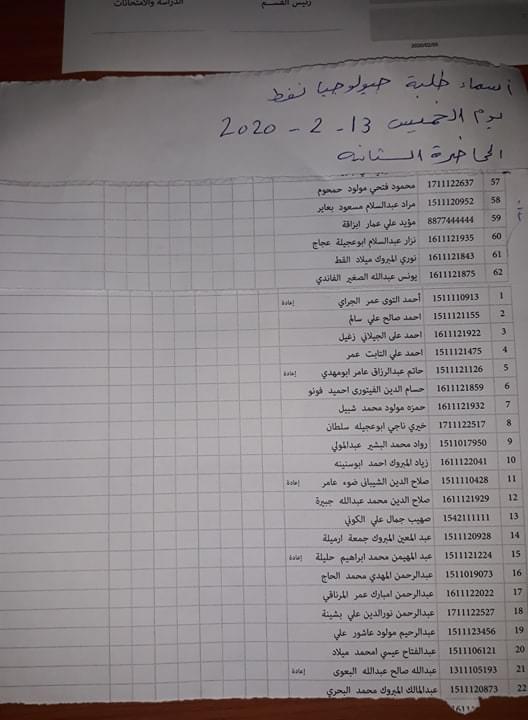 الدراسة والامتحانات
رئيس القسم
2020/02/05
أسماء طلبة جيولوجيا نفط
يوم الخميس 13 - 2 - 2020
المحاضرة الثانية
57 1711122637 محمود فتحي مولود حمحوم
58 1511120952 مراد عبدالسلام مسعود بعاير
59 8877444444 مؤيد علي عمار ابزاقة
60 1611121935 نزار عبدالسلام ابوعجيلة عجاج
61 1611121843 نوري المبروك ميلاد القط
62 1611121875 يونس عبدالله الصغير الفاندي
1 1511110913 أحمد التوى عمر الجراي إعادة
2 1511121155 احمد صالح علي سالم
3 1611121922 احمد على الجيلاني زغيل
4 1511121475 احمد علي الثابت عمر
5 1511121126 حاتم عبدالرزاق عامر ابومهدي إعادة
6 1611121859 حسام الدين الفيتورى احميد فونو
7 1611121932 حمزه مولود محمد شبيل
8 1711122517 خيري ناجي ابوعجيله سلطان
9 1511017950 رواد محمد البشير عبدالمولي
10 1611122041 زياد المبروك احمد ابوسنينه
11 1511110428 صلاح الدين الشيبانى ضوء عامر إعادة
12 1611121929 صلاح الدين محمد عبدالله جبيرة
13 1542111111 صهيب جمال علي الكوني
14 1511120928 عبد المعين المبروك جمعة ارميلة
15 1511121224 عبد المهيمن محمد ابراهيم حليلة إعادة
16 1511019073 عبدالرحمن المهدي محمد الحاج
17 1611122022 عبدالرحمن امبارك عمر المرناقي
18 1711122527 عبدالرحمن نورالدين علي بشينة
19 1511123456 عبدالرحيم مولود عاشور علي
20 1511106121 عبدالفتاح عيسي امحمد ميلاد
21 1311105193 عبدالله صالح عبدالله البعوى إعادة
22 1511120873 عبدالمالك المبروك محمد البحري